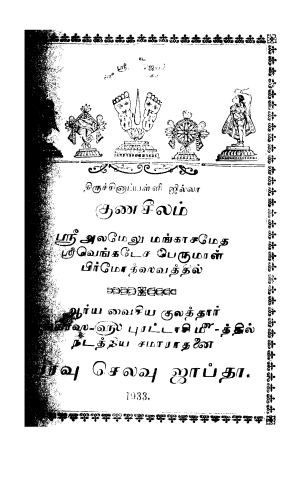 ஸ்ரீ
திருச்சினாப்பள்ளி ஜில்லா
குணசீலம்
ஸ்ரீ அலமேலு மங்காசமேத
ஸ்ரீவெங்கடேச பெருமாள்
பிர்மோத்ஸவத்தில்
ஆர்ய வைசிய குலத்தார்
புரட்டாசிமீ-த்தில்
நடத்திய சமாராதனை
செலவு ஜாப்தா.
1933.